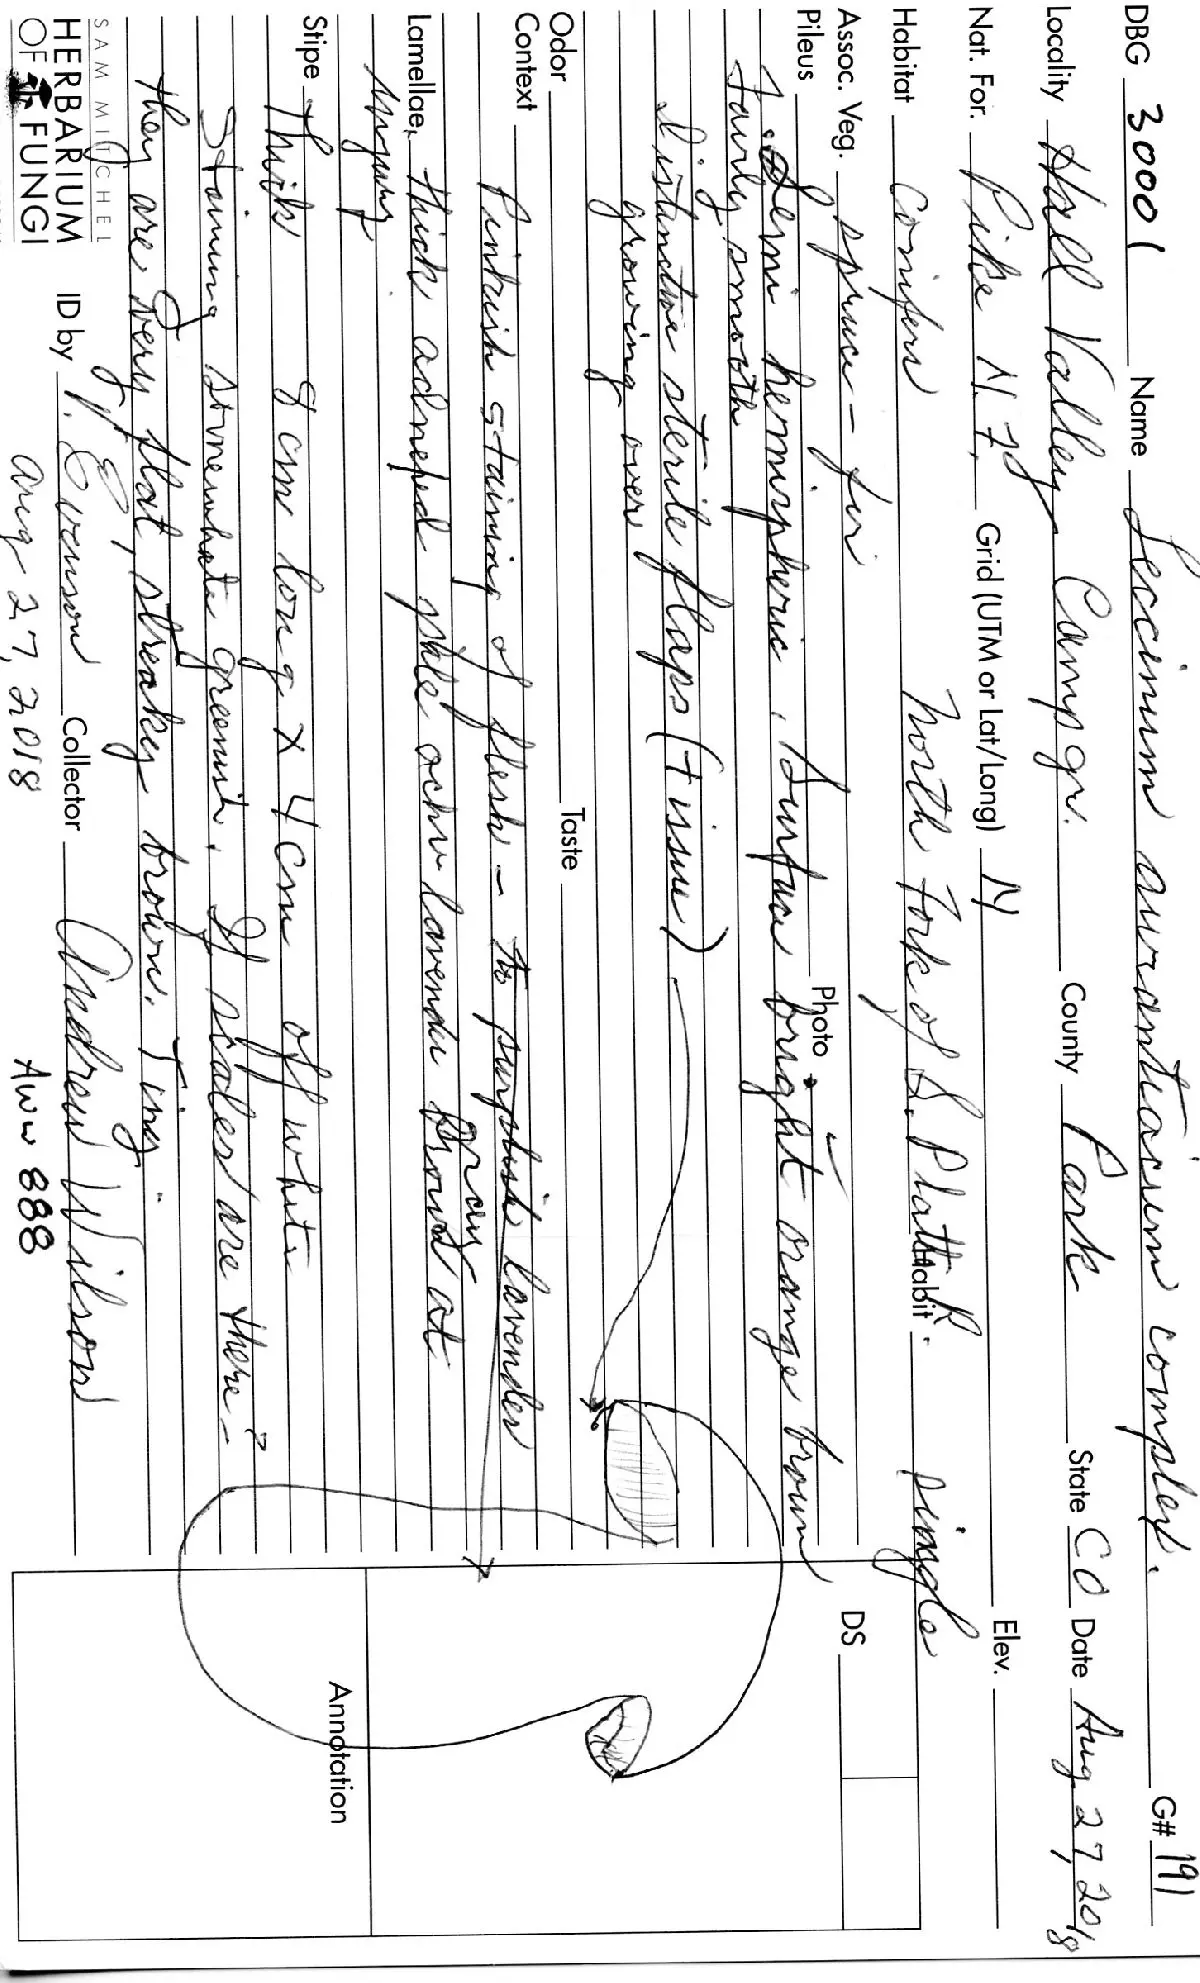 DBG 30001 Name Leccinum aurantiacum complex. G# 191
Locality Hall Valley Campgr. County Park State CO Date Aug 27, 2018
Nat. For. Pike N.F. Grid (UTM or Lat/Long) N Elev.
Habitat Conifers North Fork of S. Platte R. Habit single
Assoc. Veg. spruce - fir Photo ✓ DS
Pileus 12 cm hemispheric, surface bright orange brown
fairly smooth
distinctive sterile flaps (tissue)
growing over
Odor Taste
Context Pinkish staining of flesh - to purplish lavender
gray
Lamellae, thick adnexed pale ochre lavender brown at
injury
Stipe Thick 8 cm long x 4 cm off white
Staining somewhat greenish. If scales are there - ?
they are very flat, streaky brown. Tiny.
SAM MITCHEL
HERBARIUM
OF FUNGI
ID by V. Evenson Collector Andrew Wilson
Aug 27, 2018 AWW 888
Annotation